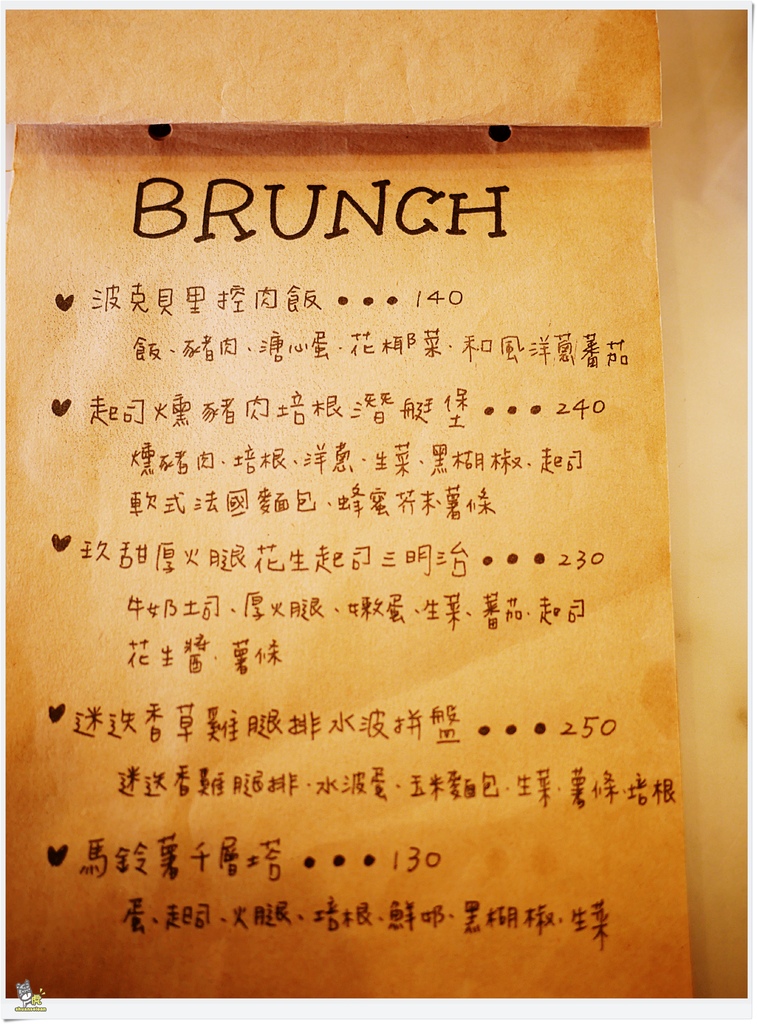 BRUNCH
♥ 波克貝里控肉飯 ● ● ● 140
飯、豬肉、溏心蛋、花椰菜、和風洋蔥蕃茄
♥ 起司燻豬肉培根潛艇堡 ● ● ● 240
燻豬肉、培根、洋蔥、生菜、黑胡椒、起司
軟式法國麵包、蜂蜜芥末薯條
♥ 玖甜厚火腿花生起司三明治 ● ● ● 230
牛奶土司、厚火腿、嫩蛋、生菜、蕃茄、起司
花生醬、薯條
♥ 迷迭香草雞腿排水波拼盤 ● ● ● 250
迷迭香雞腿排、水波蛋、玉米麵包、生菜、薯條、培根
♥ 馬鈴薯千層塔 ● ● ● 130
蛋、起司、火腿、培根、鮮奶、黑胡椒、生菜